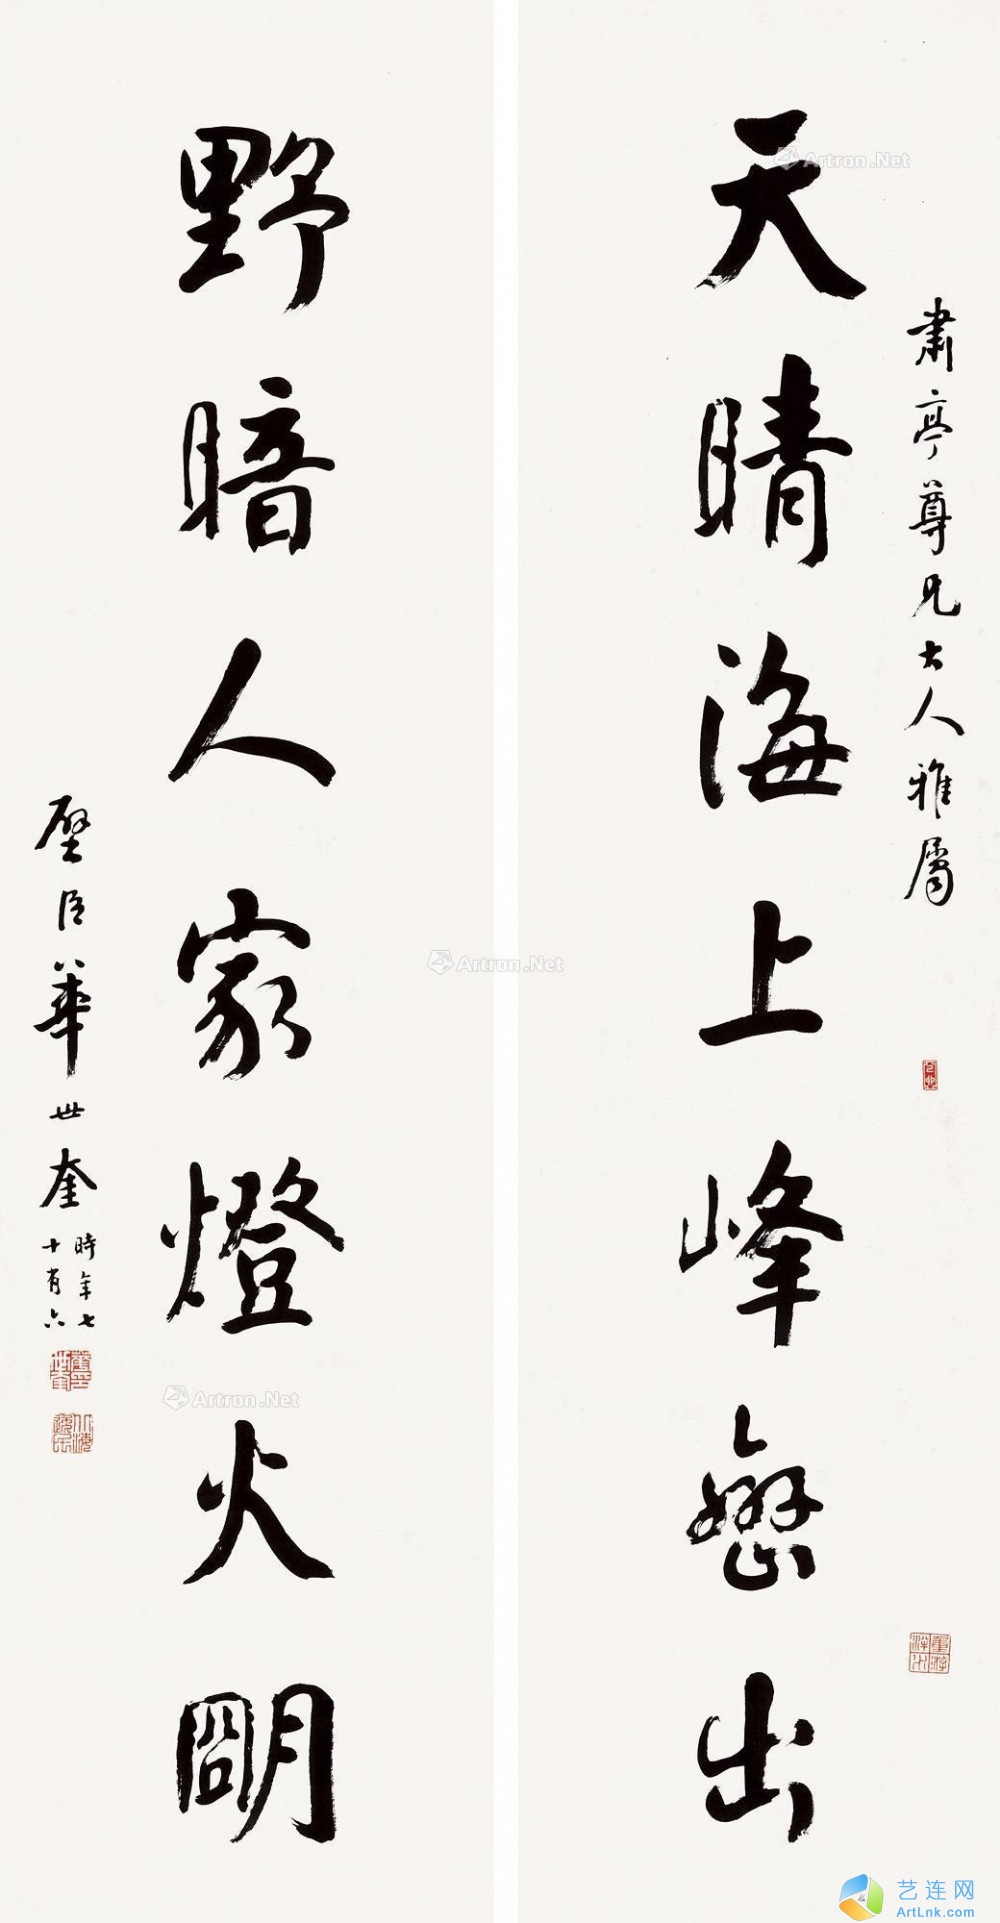 肅亭尊兄大人雅屬
天晴海上峰巒出
野暗人家燈火朙
璧臣華世奎
時年七
十有六
Artron.Net
Artron.Net
Artron.Net
艺连网
ArtLnk.com